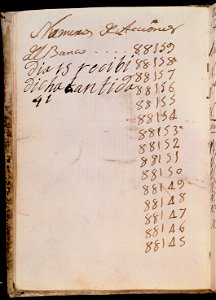 Numeros de Acciones
del Banco .... 88159
dia 15 recibi 88158
dicha cantida 88157
41 88156
88155
88154
88153
88152
88151
88150
88149
88148
88147
88146
88145